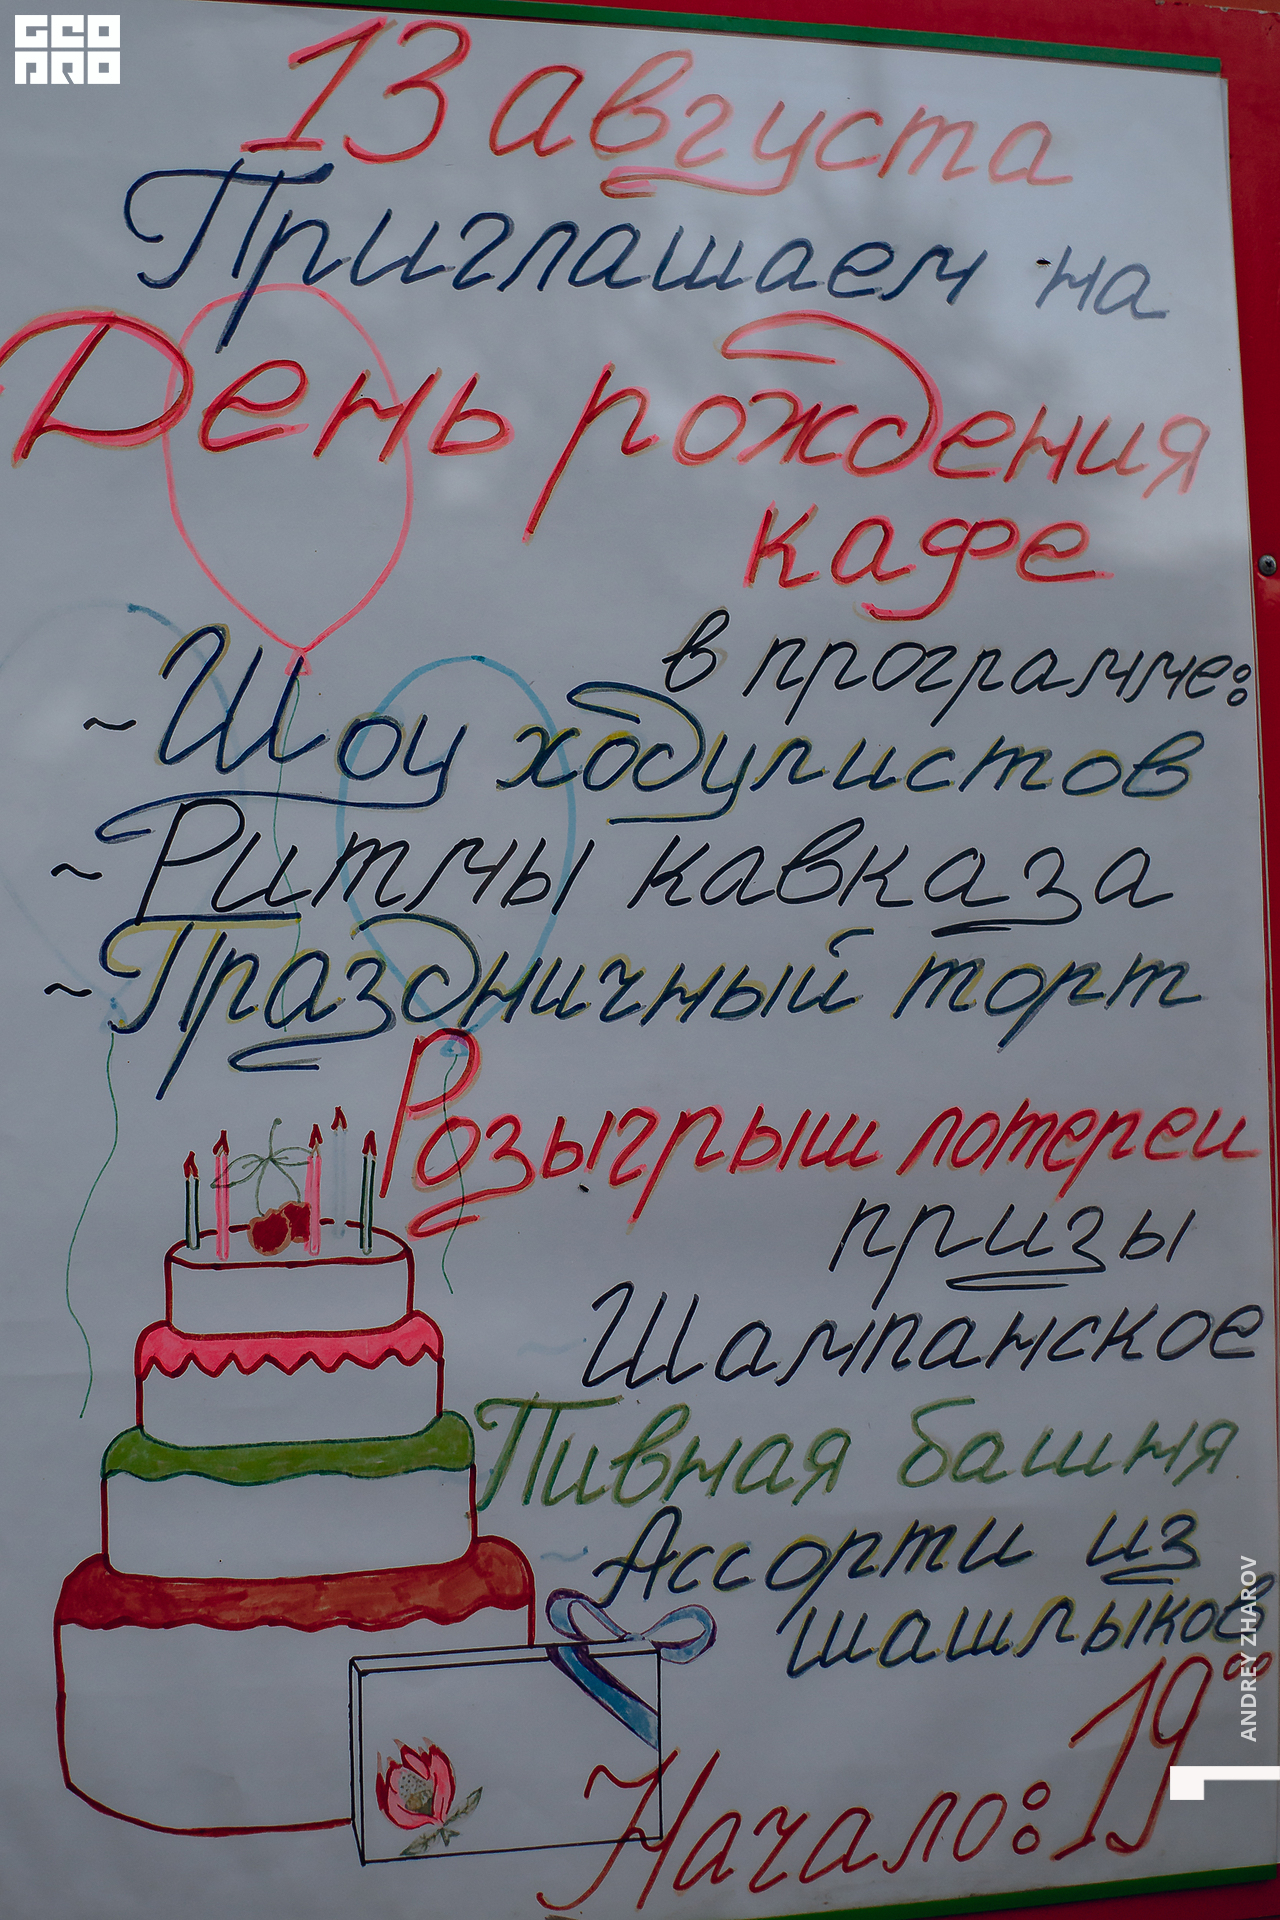 GEO
PRO
13 августа
Приглашаем на
День рождения
кафе
в программе:
~Шоу ходулистов
~Ритмы кавказа
~Праздничный торт
Розыгрыш лотереи
призы
Шампанское
Пивная башня
Ассорти из
шашлыков
Начало: 19⁰⁰
ANDREY ZHAROV